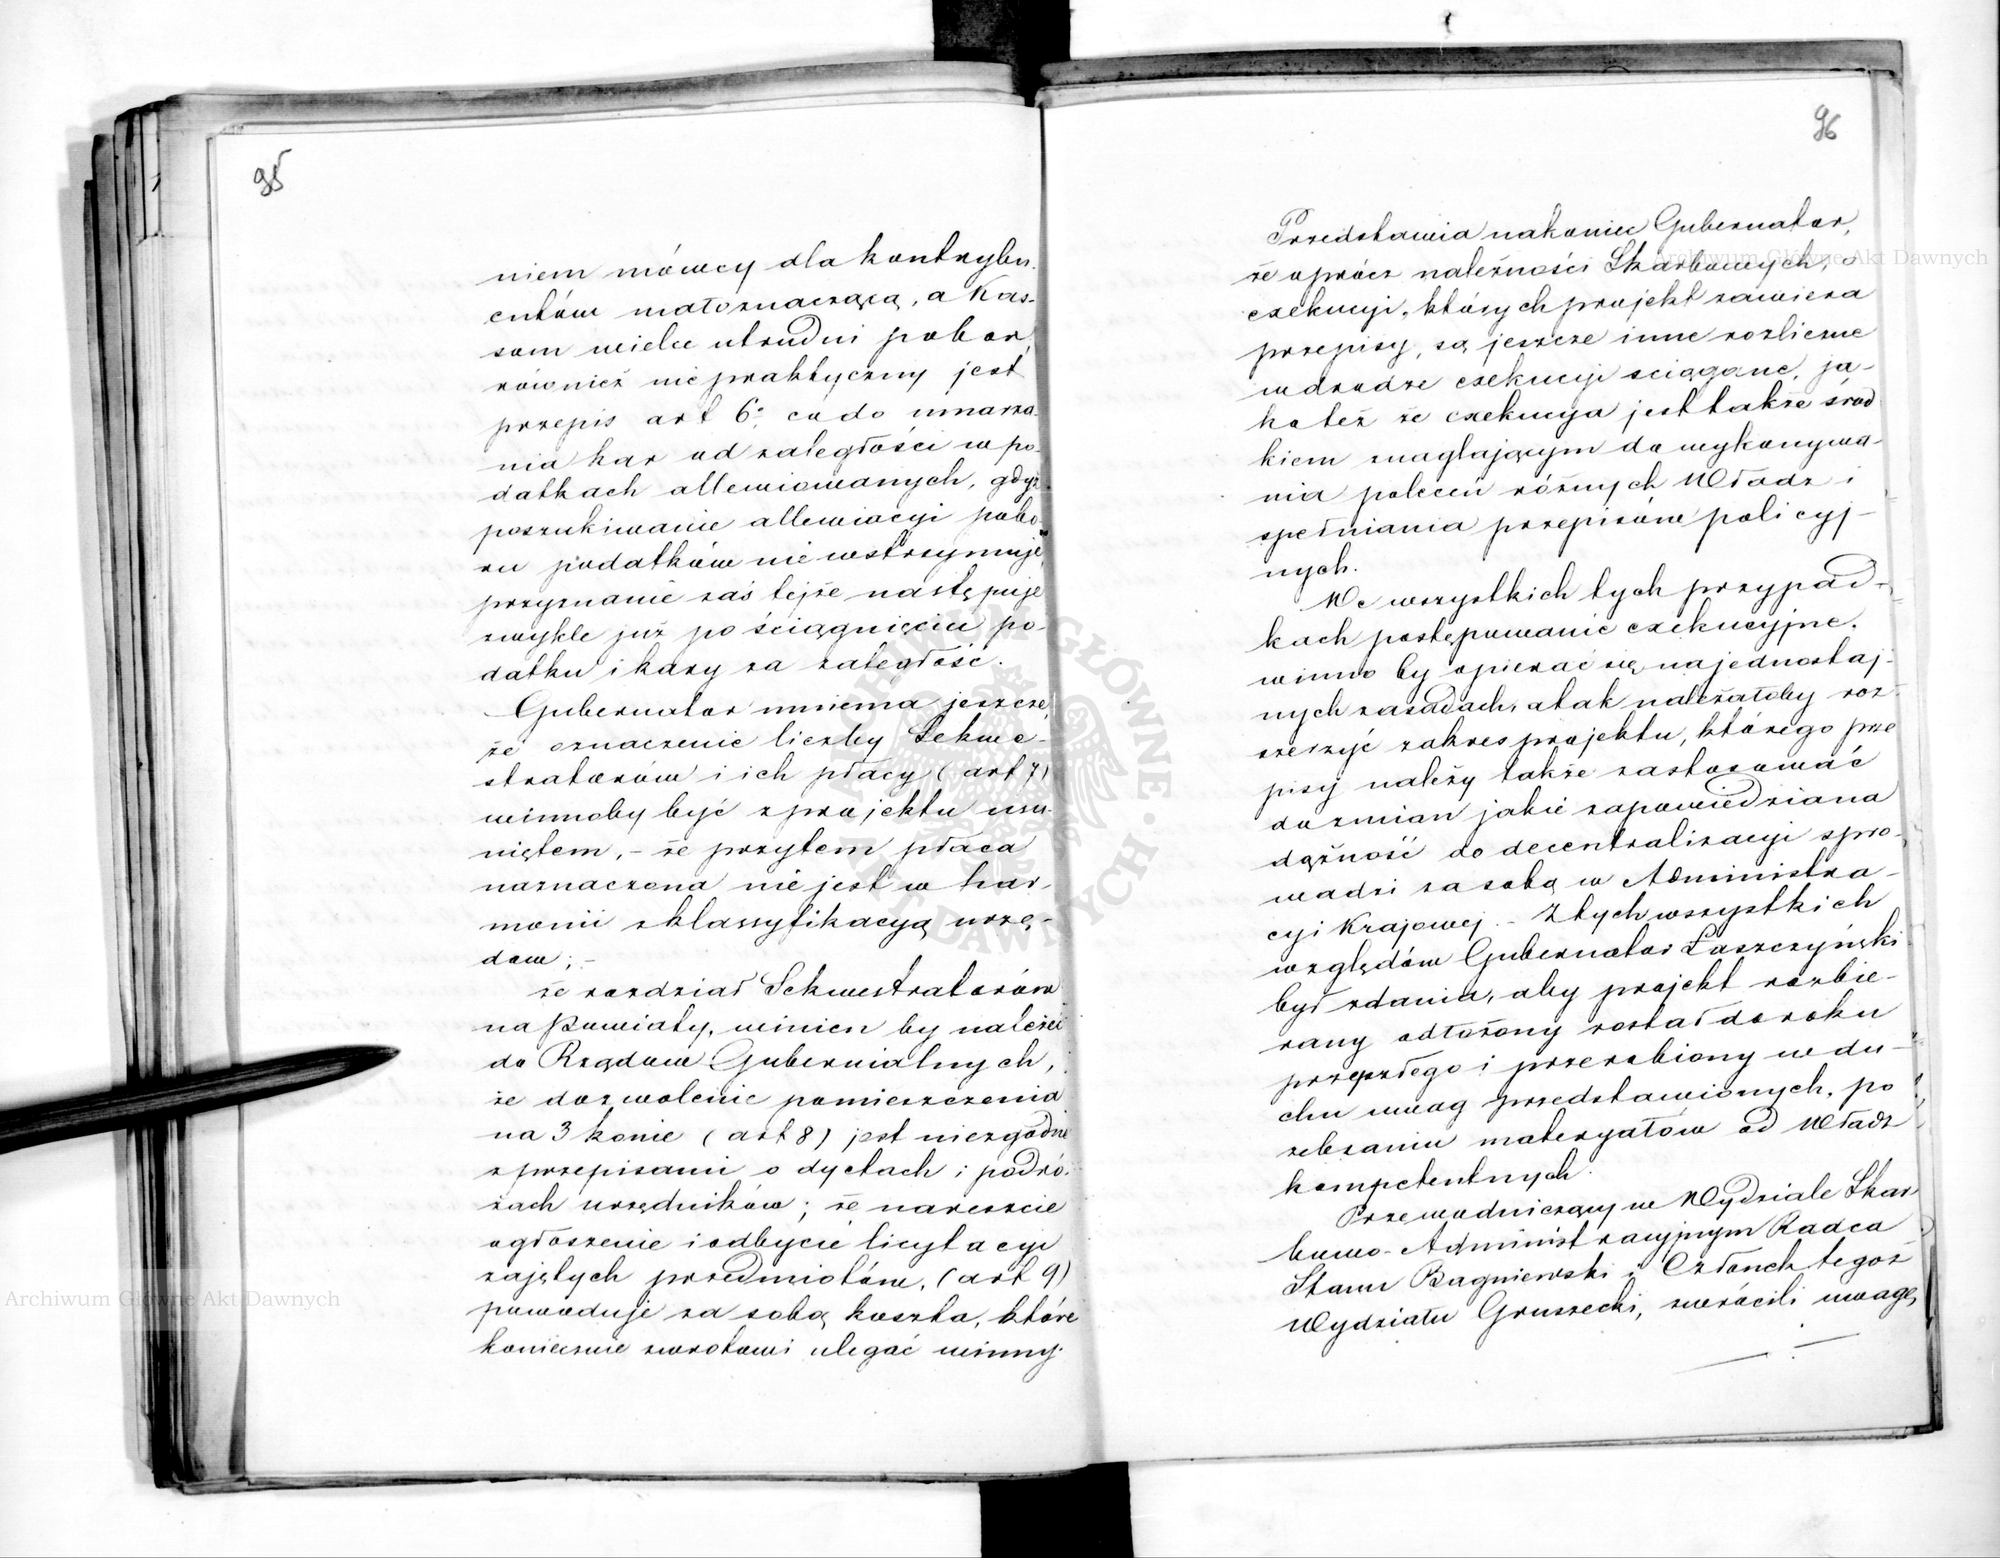 95
niem mówcy dla kontrybu-
entów małoznaczącą, a Kas-
som wielce utrudni pobor,
również nie praktyczny jest
przepis art 6: co do umarza-
nia kar od zaległości w po-
datkach allewiowanych, gdyż
poszukiwanie allewiacyi pobo-
ru podatków nie wstrzymuje,
przyznanie zaś tejże następuje
zwykle już po ściągnięciu po-
datku i kary za zaległość.
Gubernator mniema jeszcze,
że oznaczenie liczby Sekwe-
stratorów i ich płacy (art 7)
winnoby być z projektu usu-
niętem, – że przytem płaca
naznaczona nie jest w har-
monii z klassyfikacyą urzę-
dow; –
że rozdział Sekwestratorów
na Powiaty, winien by należeć
do Rządow Gubernialnych,
że dozwolenie pomieszczenia
na 3 konie (art 8) jest niezgodne
z przepisami o dyetach i podró-
żach urzędników; że nareszcie
ogłoszenie i odbycie licytacyi
zajętych przedmiotów, (art 9)
powoduje za sobą koszta, które
koniecznie zwrotowi ulegać winny.
96
Przedstawia nakoniec Gubernator,
że oprócz należności Skarbowych, o
exekucyi, których projekt zawiera
przepisy, są jeszcze inne rozliczne
w drodze exekucyi ściągane, ja-
ko też że exekucya jest także środ
kiem znaglającym do wykonywa-
nia poleceń różnych Władz i
spełniania przepisów policyj-
nych.
We wszystkich tych przypad-
kach postępowanie exekucyjne,
winno by opierać się na jednostaj-
nych zasadach, a tak należałoby roz-
szerzyć zakres projektu, którego prze
pisy należy także zastosować
do zmian jakie zapowiedziana
dążność do decentralizacyi spro-
wadzi za sobą w Administra-
cyi Krajowej. – Z tych wszystkich
względów Gubernator Łaszczyński
był zdania, aby projekt rozbie-
rany odłożony został do roku
przyszłego i przerobiony w du-
chu uwag przedstawionych, po
zebraniu materyałów od Władz
kompetentnych.
Przewodniczący w Wydziale Skar
bowo-Administracyjnym Radca
Stanu Bagniewski i Członek tegoż
Wydziału Gruszecki, zwrócili uwagę,
Archiwum Główne Akt Dawnych
Archiwum Główne Akt Dawnych
ARCHIWUM GŁÓWNE AKT DAWNYCH